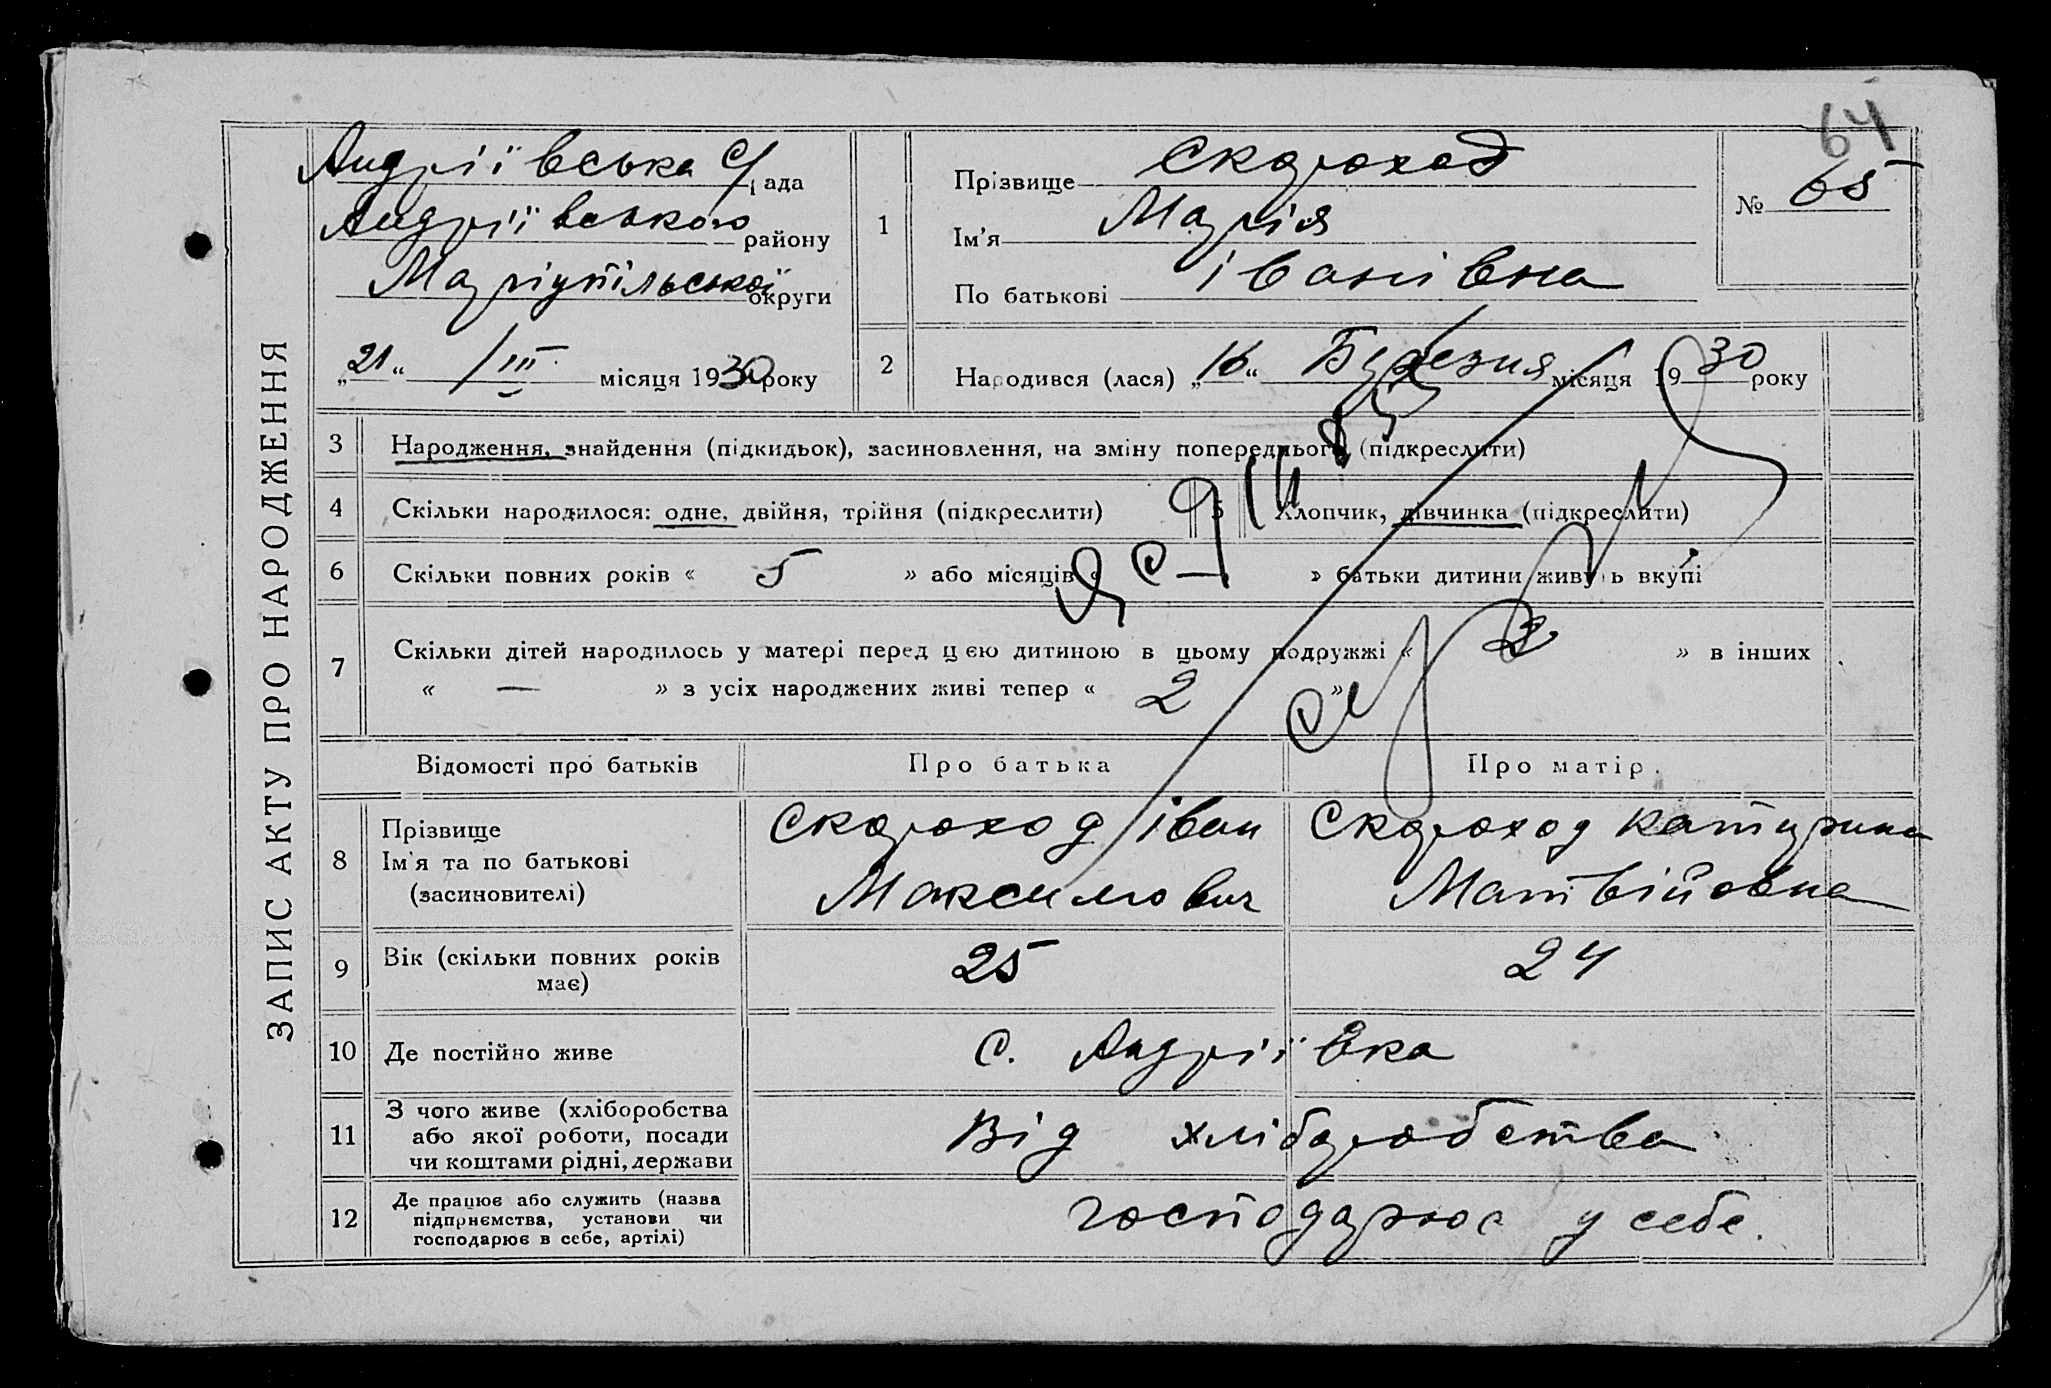 64
ЗАПИС АКТУ ПРО НАРОДЖЕННЯ
Андріївська с/рада
Андріївського району
Маріупільської округи
„21“ /III місяця 1930 року
1
Прізвище Скороход
Ім'я Марія
По батькові Іванівна
№ 65
2
Народився (лася) „16“ Березня місяця 1930 року
3 Народження, знайдення (підкидьок), засиновлення, на зміну попереднього (підкреслити)
4 Скільки народилося: одне, двійня, трійня (підкреслити) 5 Хлопчик, дівчинка (підкреслити)
6 Скільки повних років « 5 » або місяців « » батьки дитини живуть вкупі
7 Скільки дітей народилось у матері перед цією дитиною в цьому подружжі « 2 » в інших
« — » з усіх народжених живі тепер « 2 »
Відомості про батьків Про батька Про матір
8 Прізвище
Ім'я та по батькові
(засиновителі)
Скороход Іван
Максимович
Скороход Катерина
Матвійовна
9 Вік (скільки повних років
має)
25 24
10 Де постійно живе с. Андріївка
11 З чого живе (хліборобства
або якої роботи, посади
чи коштами рідні, держави
Від хліборобства
12 Де працює або служить (назва
підприємства, установи чи
господарює в себе, артілі)
господарює у себе.